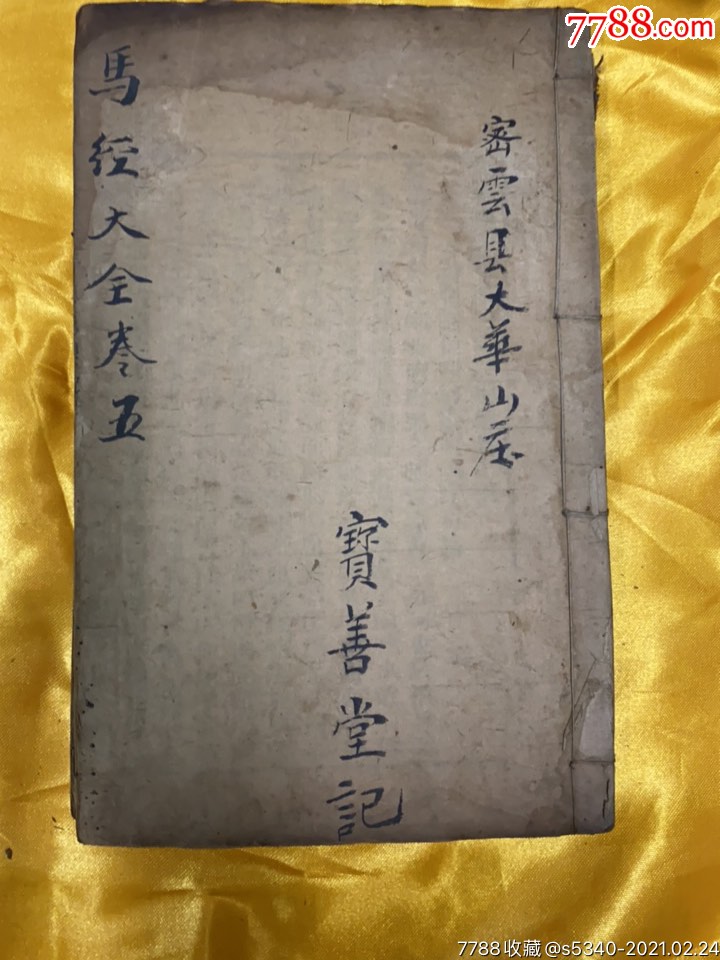 7788.com
密雲县大華山庄
寶善堂記
馬經大全卷五
7788收藏@s5340-2021.02.24